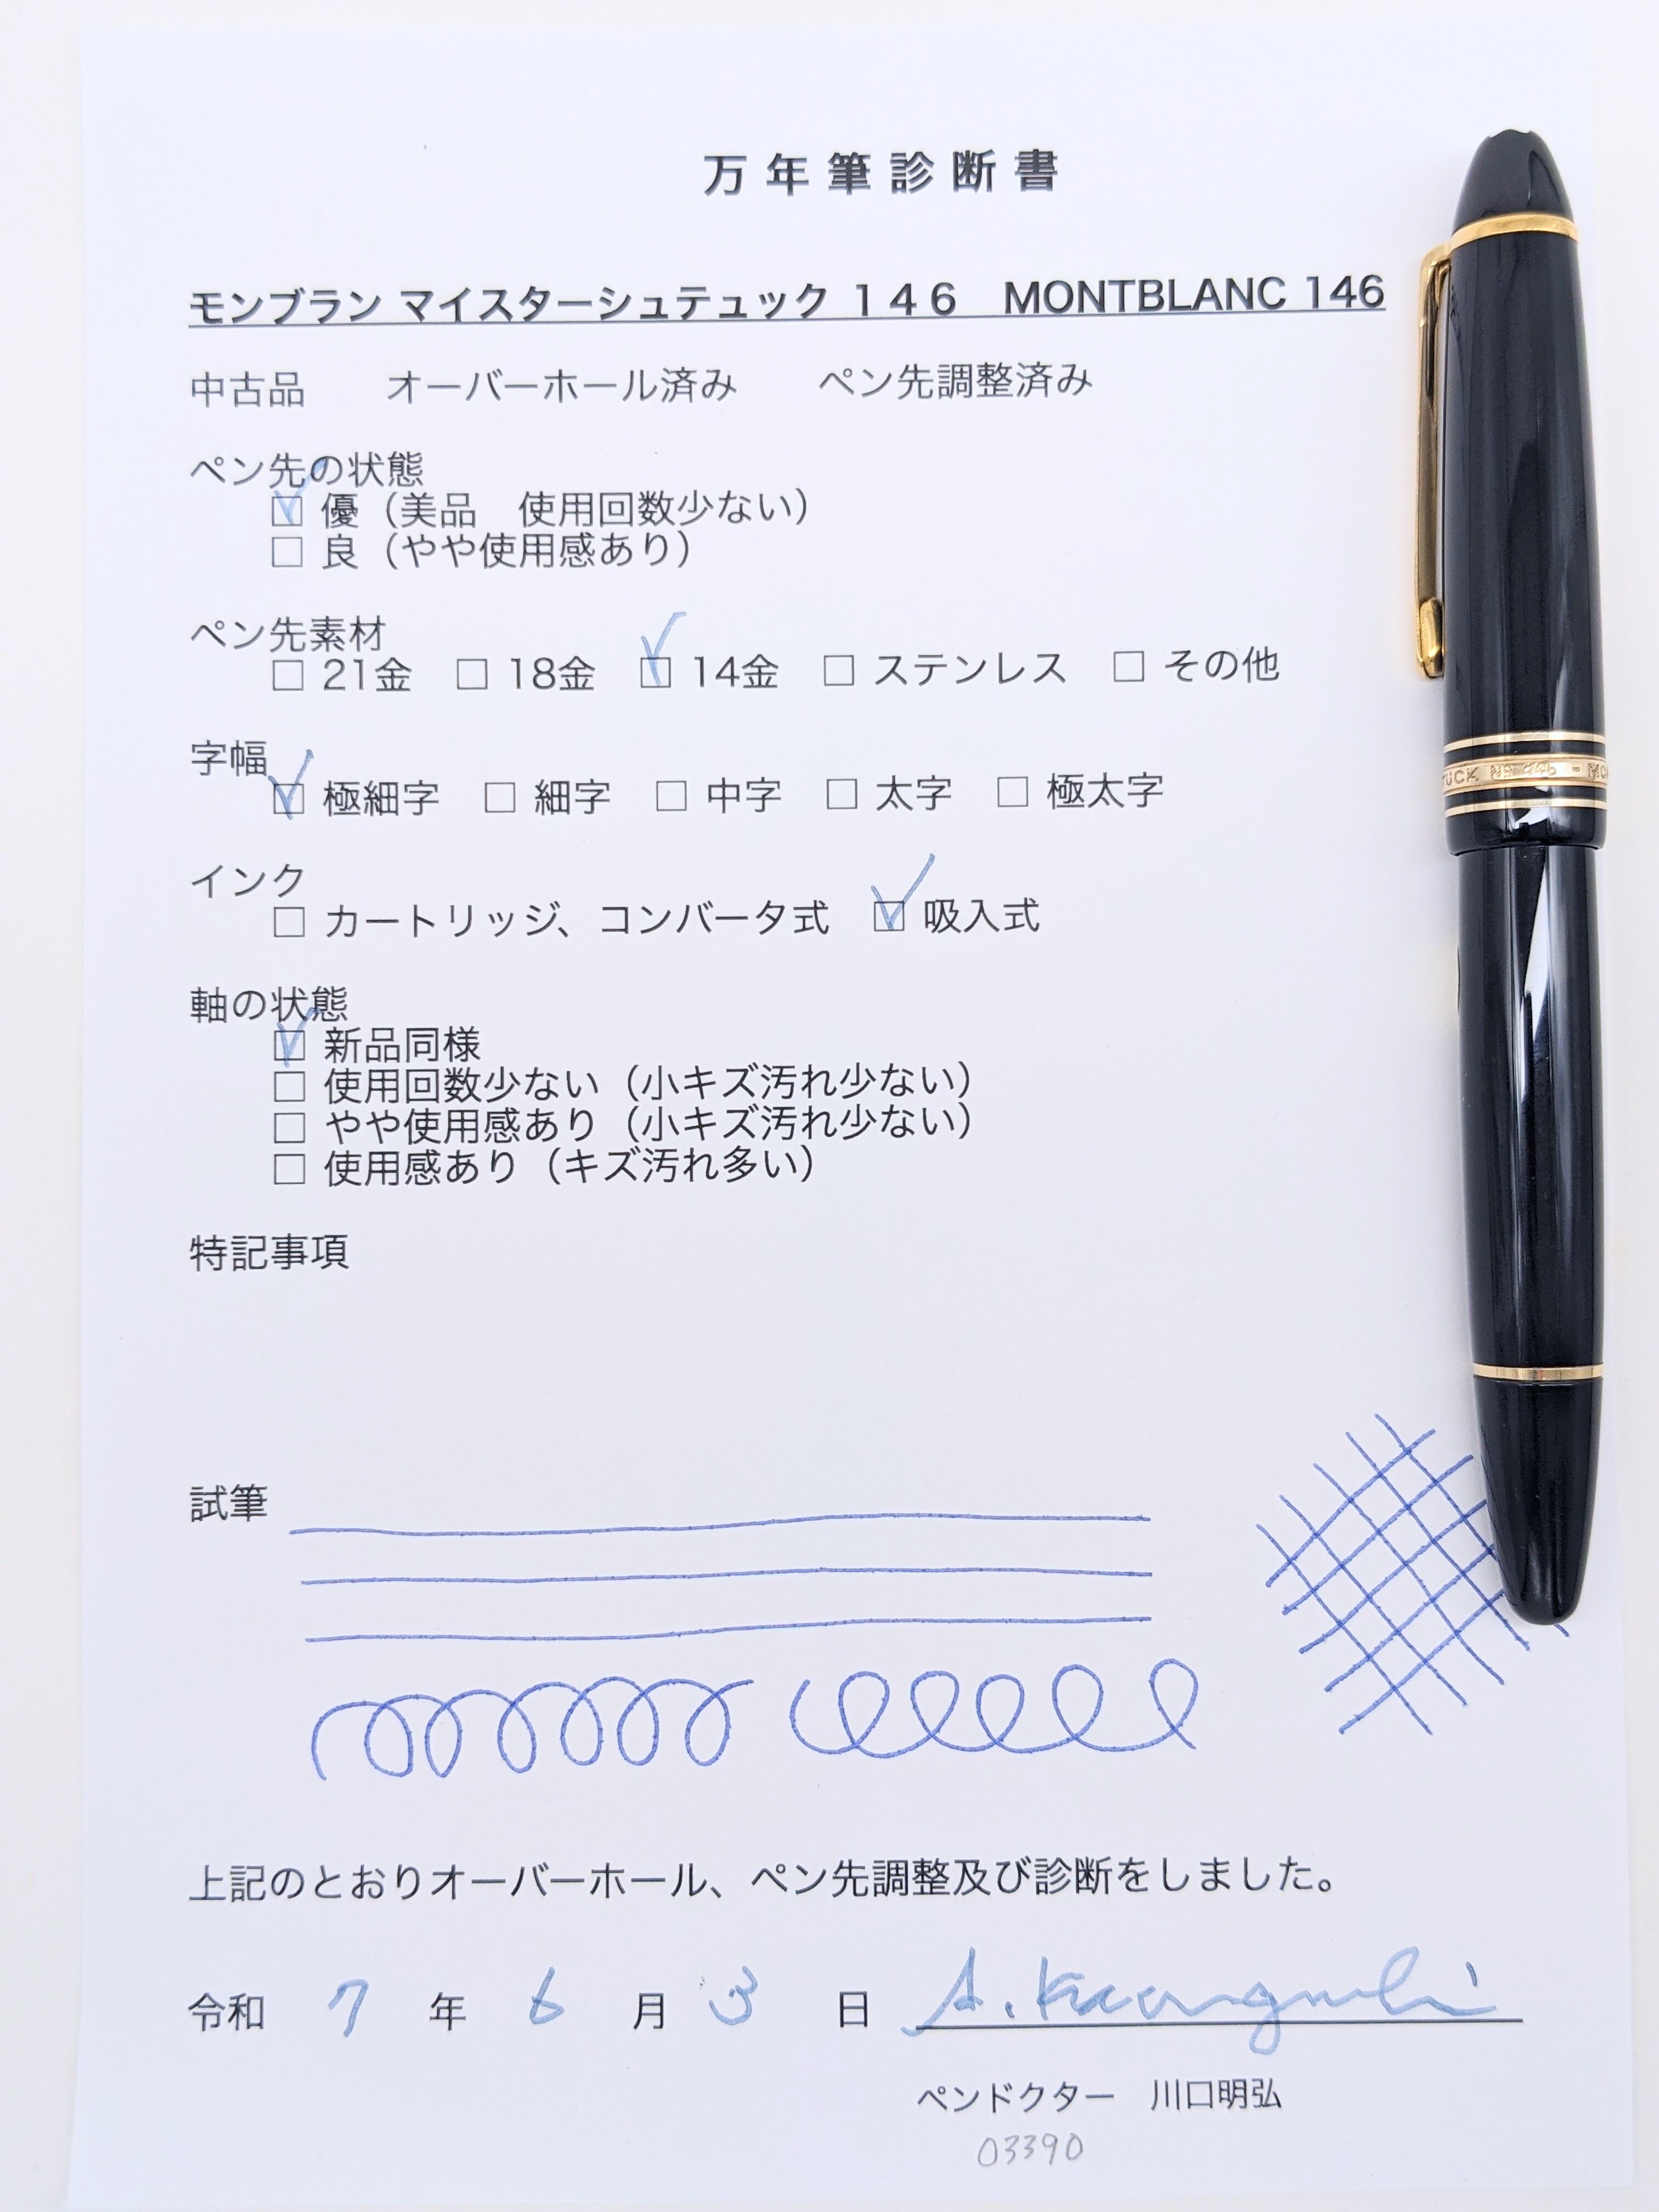 万年筆診断書
モンブラン マイスターシュテュック １４６　MONTBLANC 146
中古品　　オーバーホール済み　　ペン先調整済み
ペン先の状態
☑ 優（美品　使用回数少ない）
□ 良（やや使用感あり）
ペン先素材
□ 21金　□ 18金　☑ 14金　□ ステンレス　□ その他
字幅
☑ 極細字　□ 細字　□ 中字　□ 太字　□ 極太字
インク
□ カートリッジ、コンバータ式　☑ 吸入式
軸の状態
☑ 新品同様
□ 使用回数少ない（小キズ汚れ少ない）
□ やや使用感あり（小キズ汚れ少ない）
□ 使用感あり（キズ汚れ多い）
特記事項
試筆
上記のとおりオーバーホール、ペン先調整及び診断をしました。
令和 7 年 6 月 3 日 A. Kawaguchi
ペンドクター　川口明弘
03390